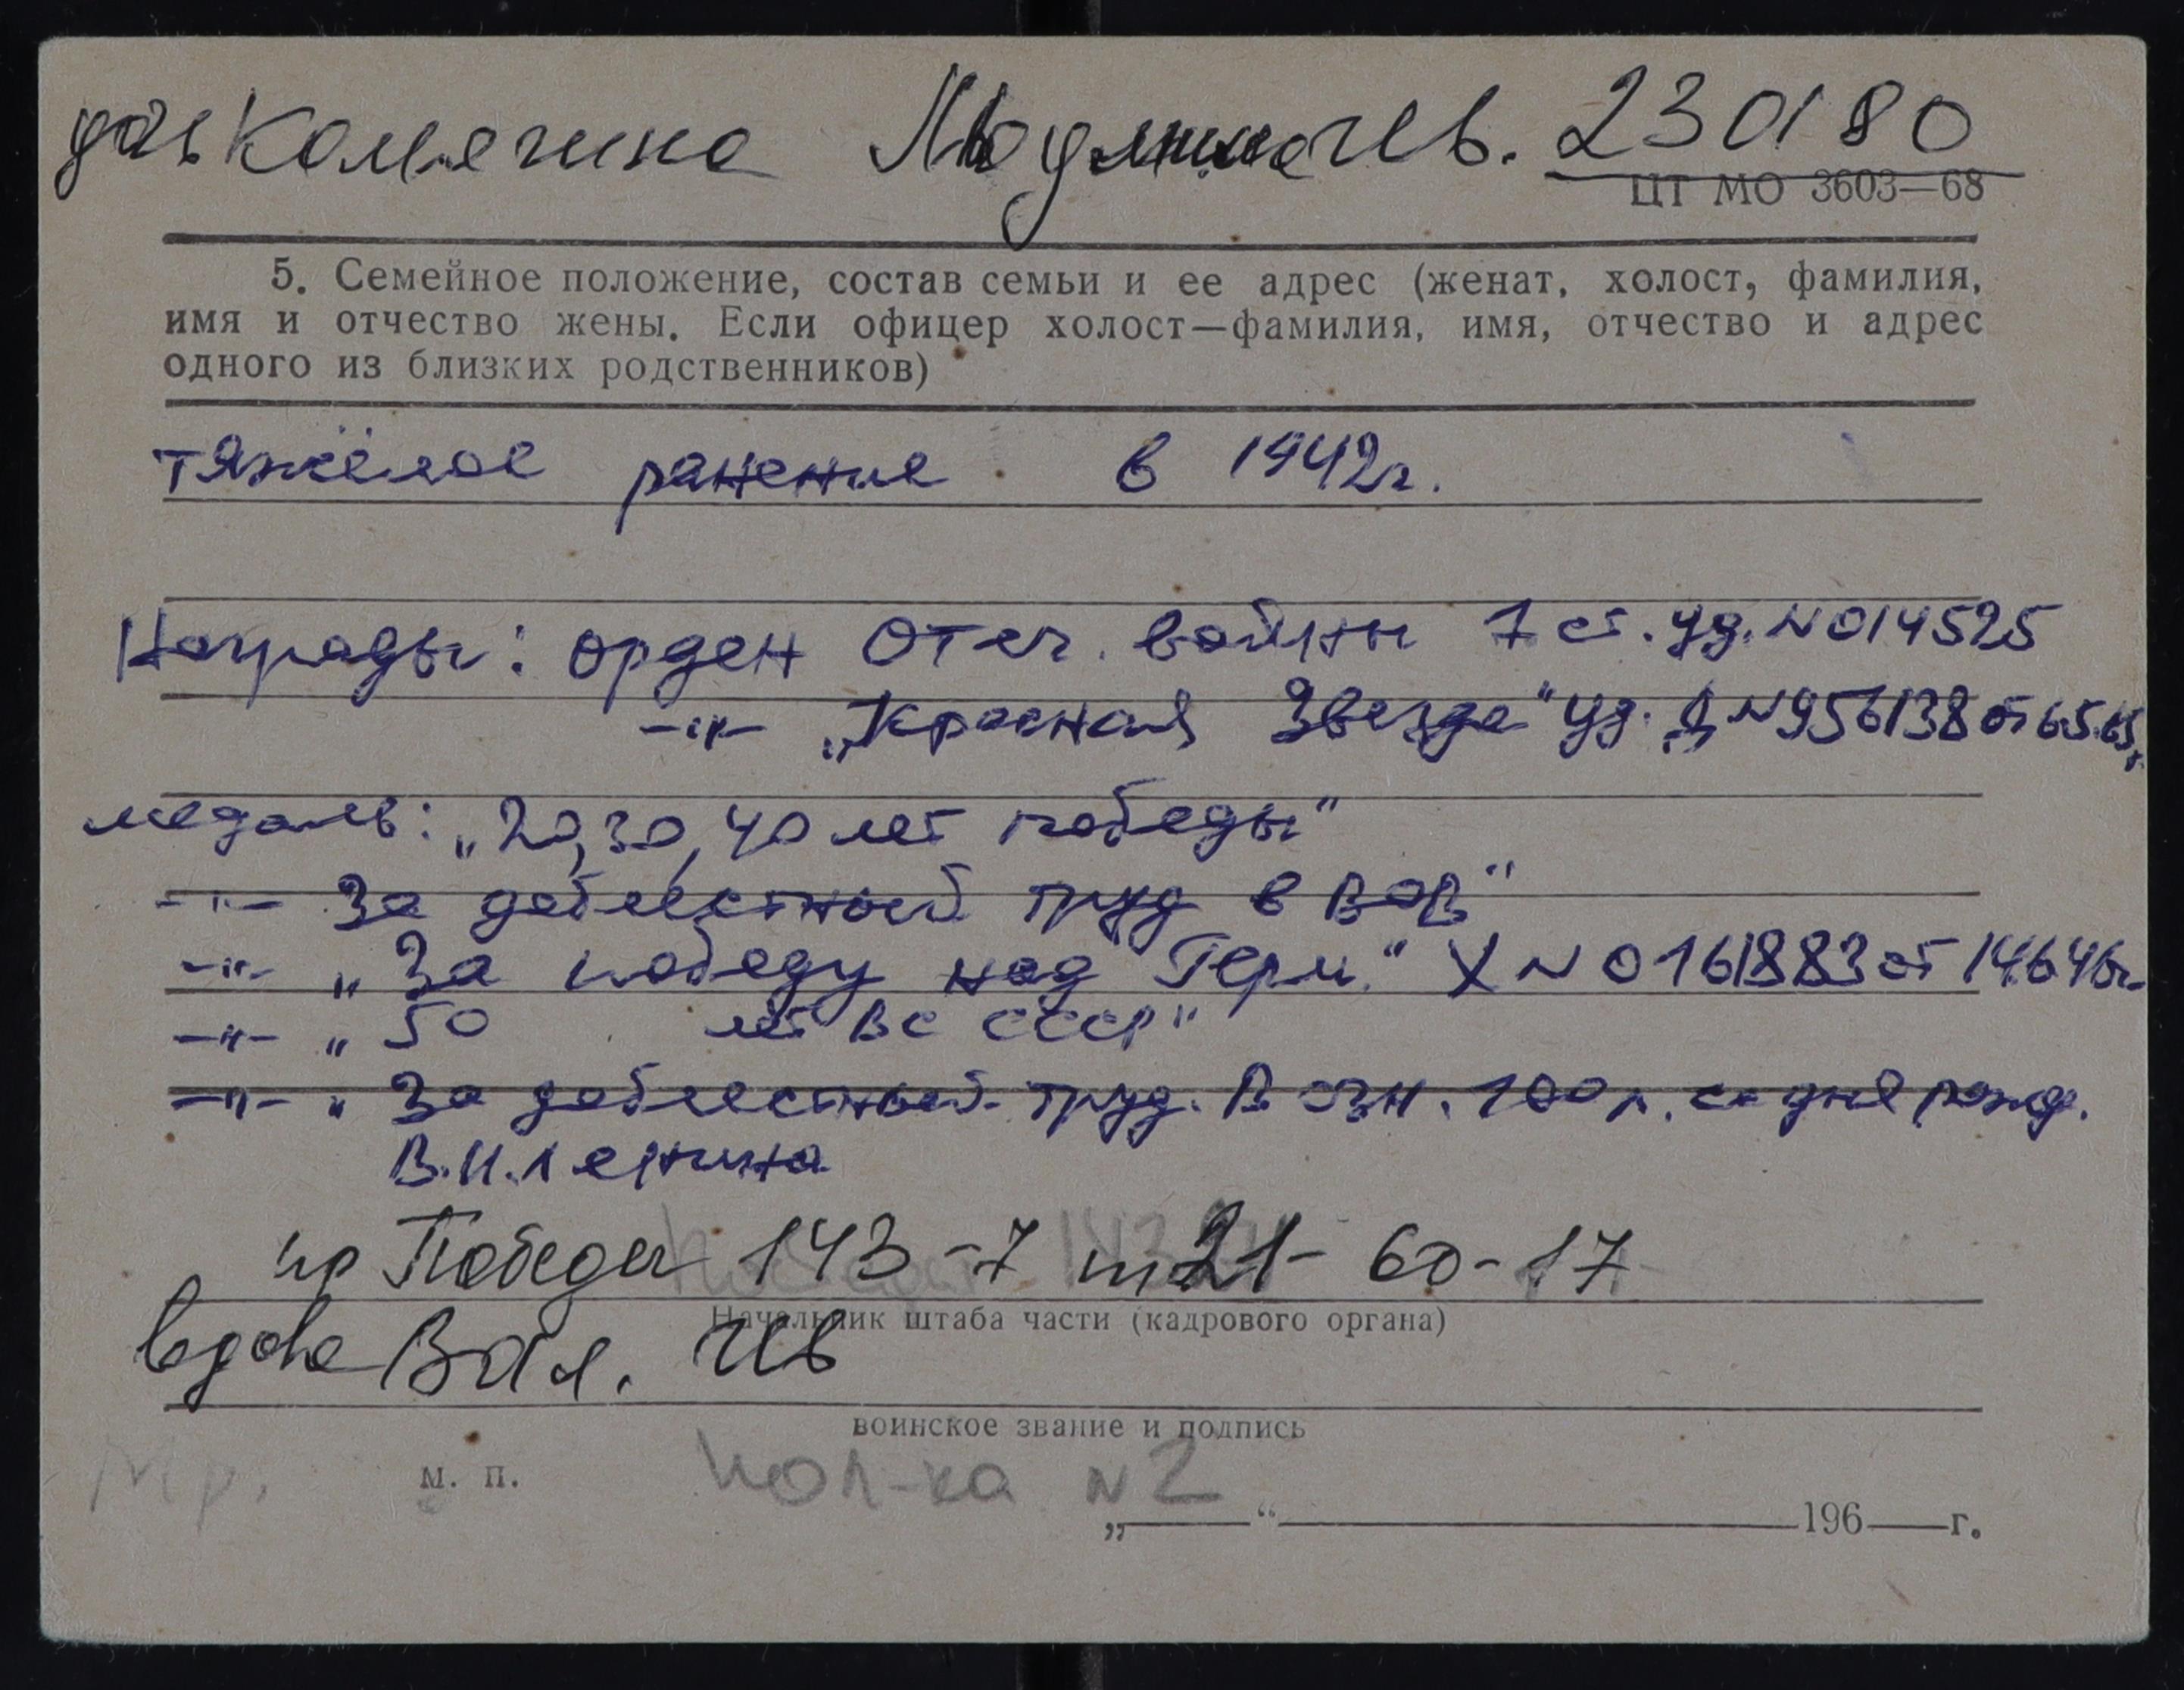 дочь Комягина Людмила Ив. 230180
ЦТ МО 3603—68
5. Семейное положение, состав семьи и ее адрес (женат, холост, фамилия,
имя и отчество жены. Если офицер холост—фамилия, имя, отчество и адрес
одного из близких родственников)
тяжёлое ранение в 1942г.
Награды: орден Отеч. войны 1 ст. уд. N 014525
-"- „Красная Звезда" уд. N 956138 от 6.5.
медаль: „20, 30, 40 лет победы"
-"- За доблестный труд в ВОВ"
-"- „За победу над Герм." Х N 0161883 от 14.6.46г.
-"- „50 лет ВС СССР"
-"- „За доблестный труд. В озн. 100 л. со дня рожд.
В.И.Ленина
пр Победы 143-7 т 21-60-17
Начальник штаба части (кадрового органа)
вдова Вал. Ив
воинское звание и подпись
м. п. пол-ка N 2
„ “ 196 г.